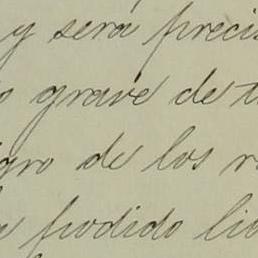 y será preci
o grave de t
gro de los r
podido li